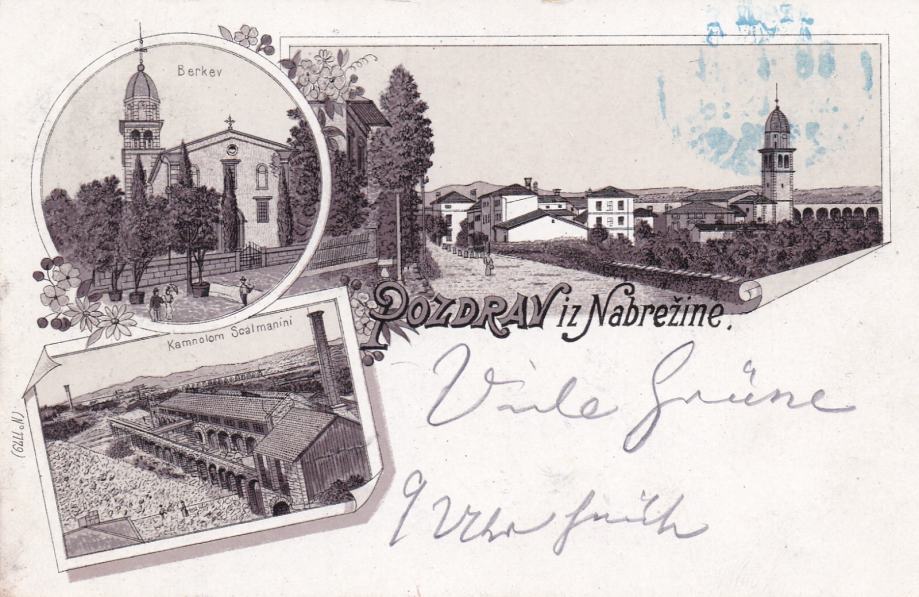 Berkev
Pozdrav iz Nabrežine.
Kamnolom Scalmanini
(No 1179)
Viele Grüße
9 Uhr früh